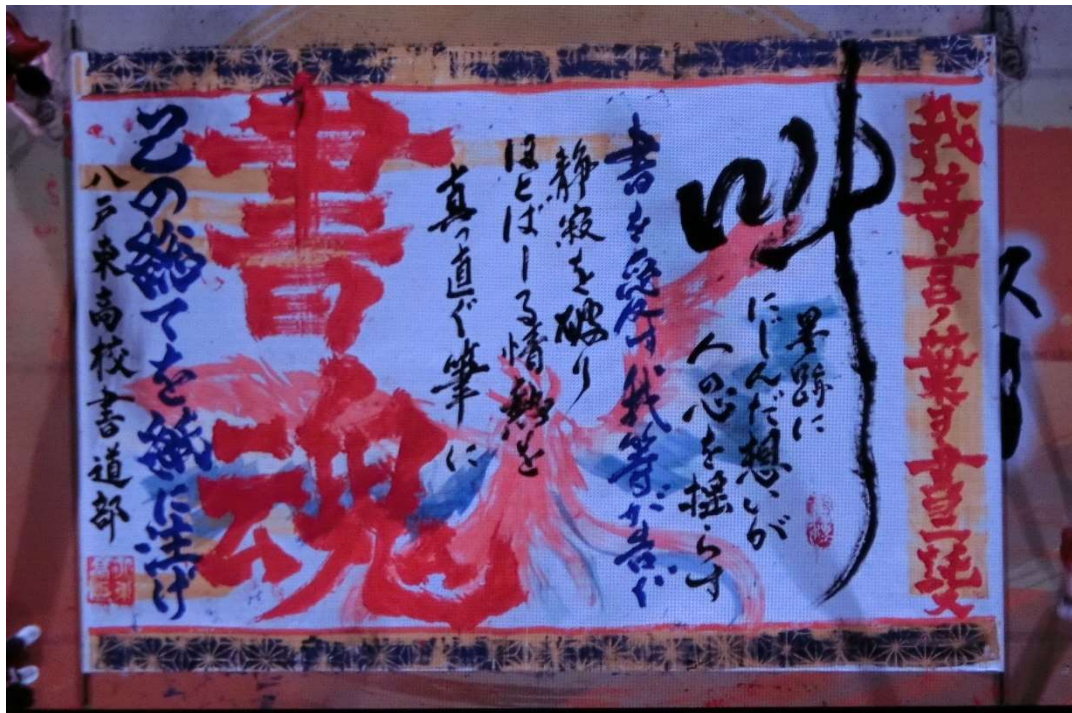 我等言ノ葉ヲ書ニ託ス
叫
墨跡に
にじんだ想いが
人の心を揺らす
書を愛す我等が告ぐ
静寂を破り
ほとばしる情熱を
真っ直ぐ筆に
書魂
己の総てを紙に注げ
八戸東高校書道部